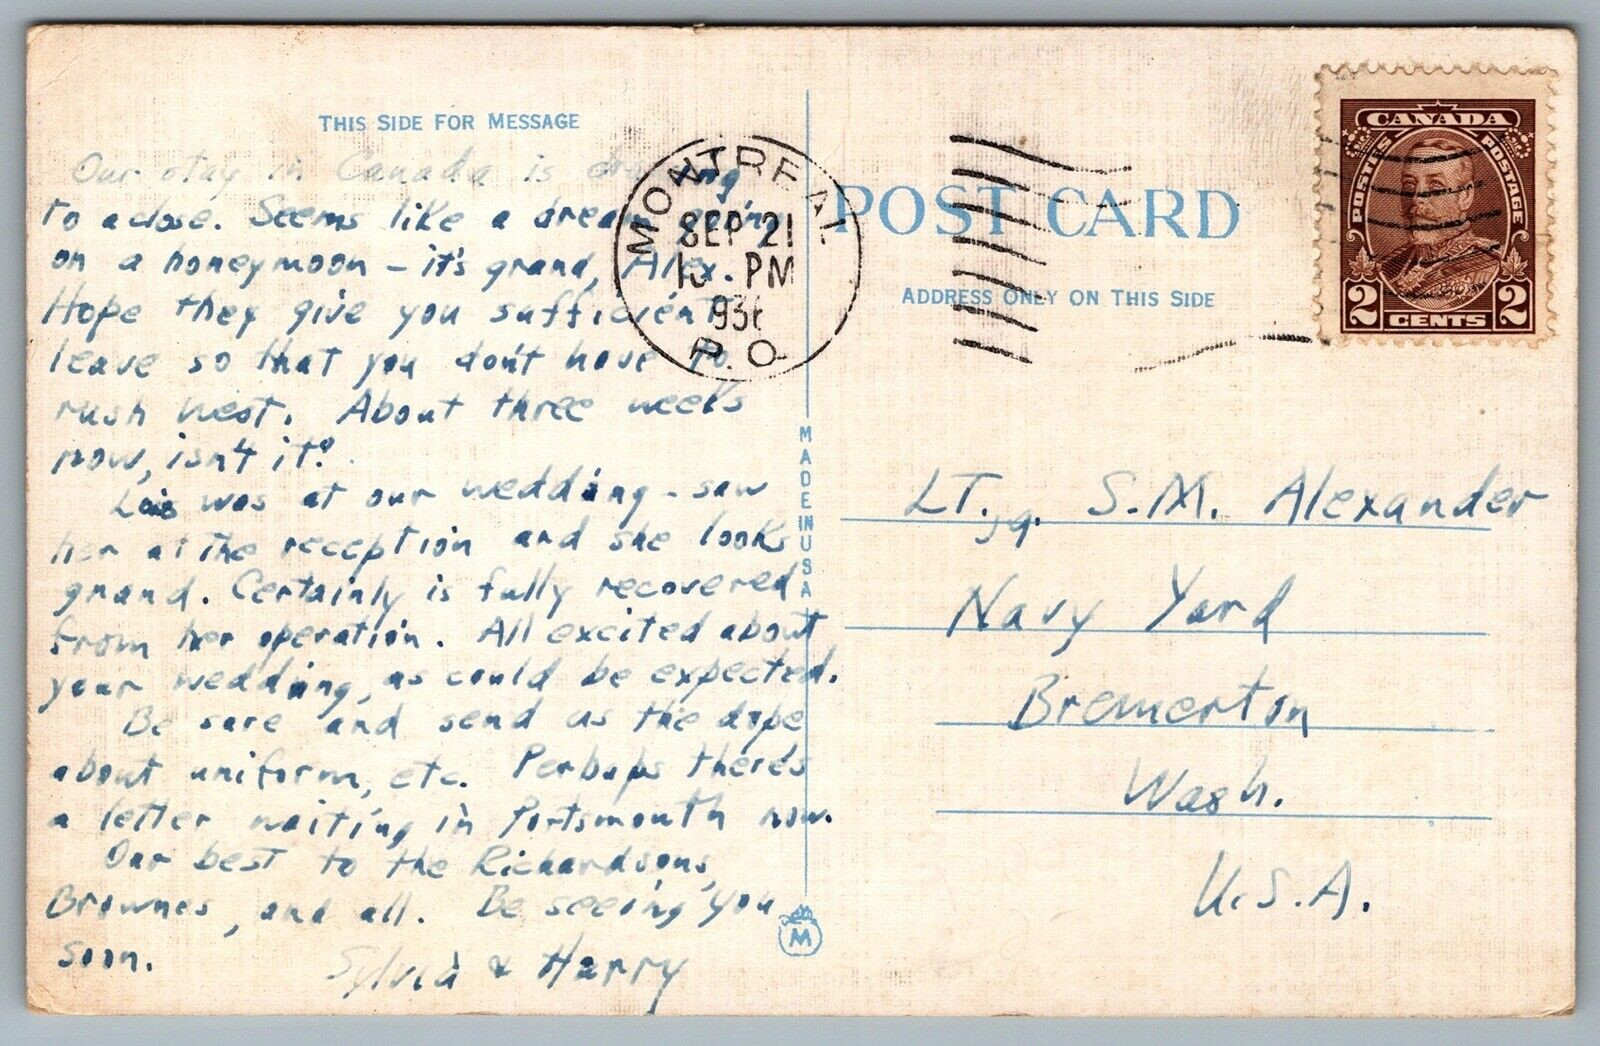 THIS SIDE FOR MESSAGE
Our stay in Canada is drawing
to a close. Seems like a dream going
on a honeymoon - it's grand, Alex.
Hope they give you sufficient
leave so that you don't have to
rush West. About three weeks
now, isn't it?
Lois was at our wedding - saw
her at the reception and she looks
grand. Certainly is fully recovered
from her operation. All excited about
your wedding, as could be expected.
Be sure and send us the dope
about uniform, etc. Perhaps there's
a letter waiting in Portsmouth now.
Our best to the Richardsons,
Brownes, and all. Be seeing you
soon.
Sylvia & Harry
MONTREAL
SEP 21
PM
P.O.
MADE IN USA
M
POST CARD
ADDRESS ONLY ON THIS SIDE
CANADA
POSTES POSTAGE
2 CENTS 2
LT. jg. S.M. Alexander
Navy Yard
Bremerton
Wash.
U.S.A.